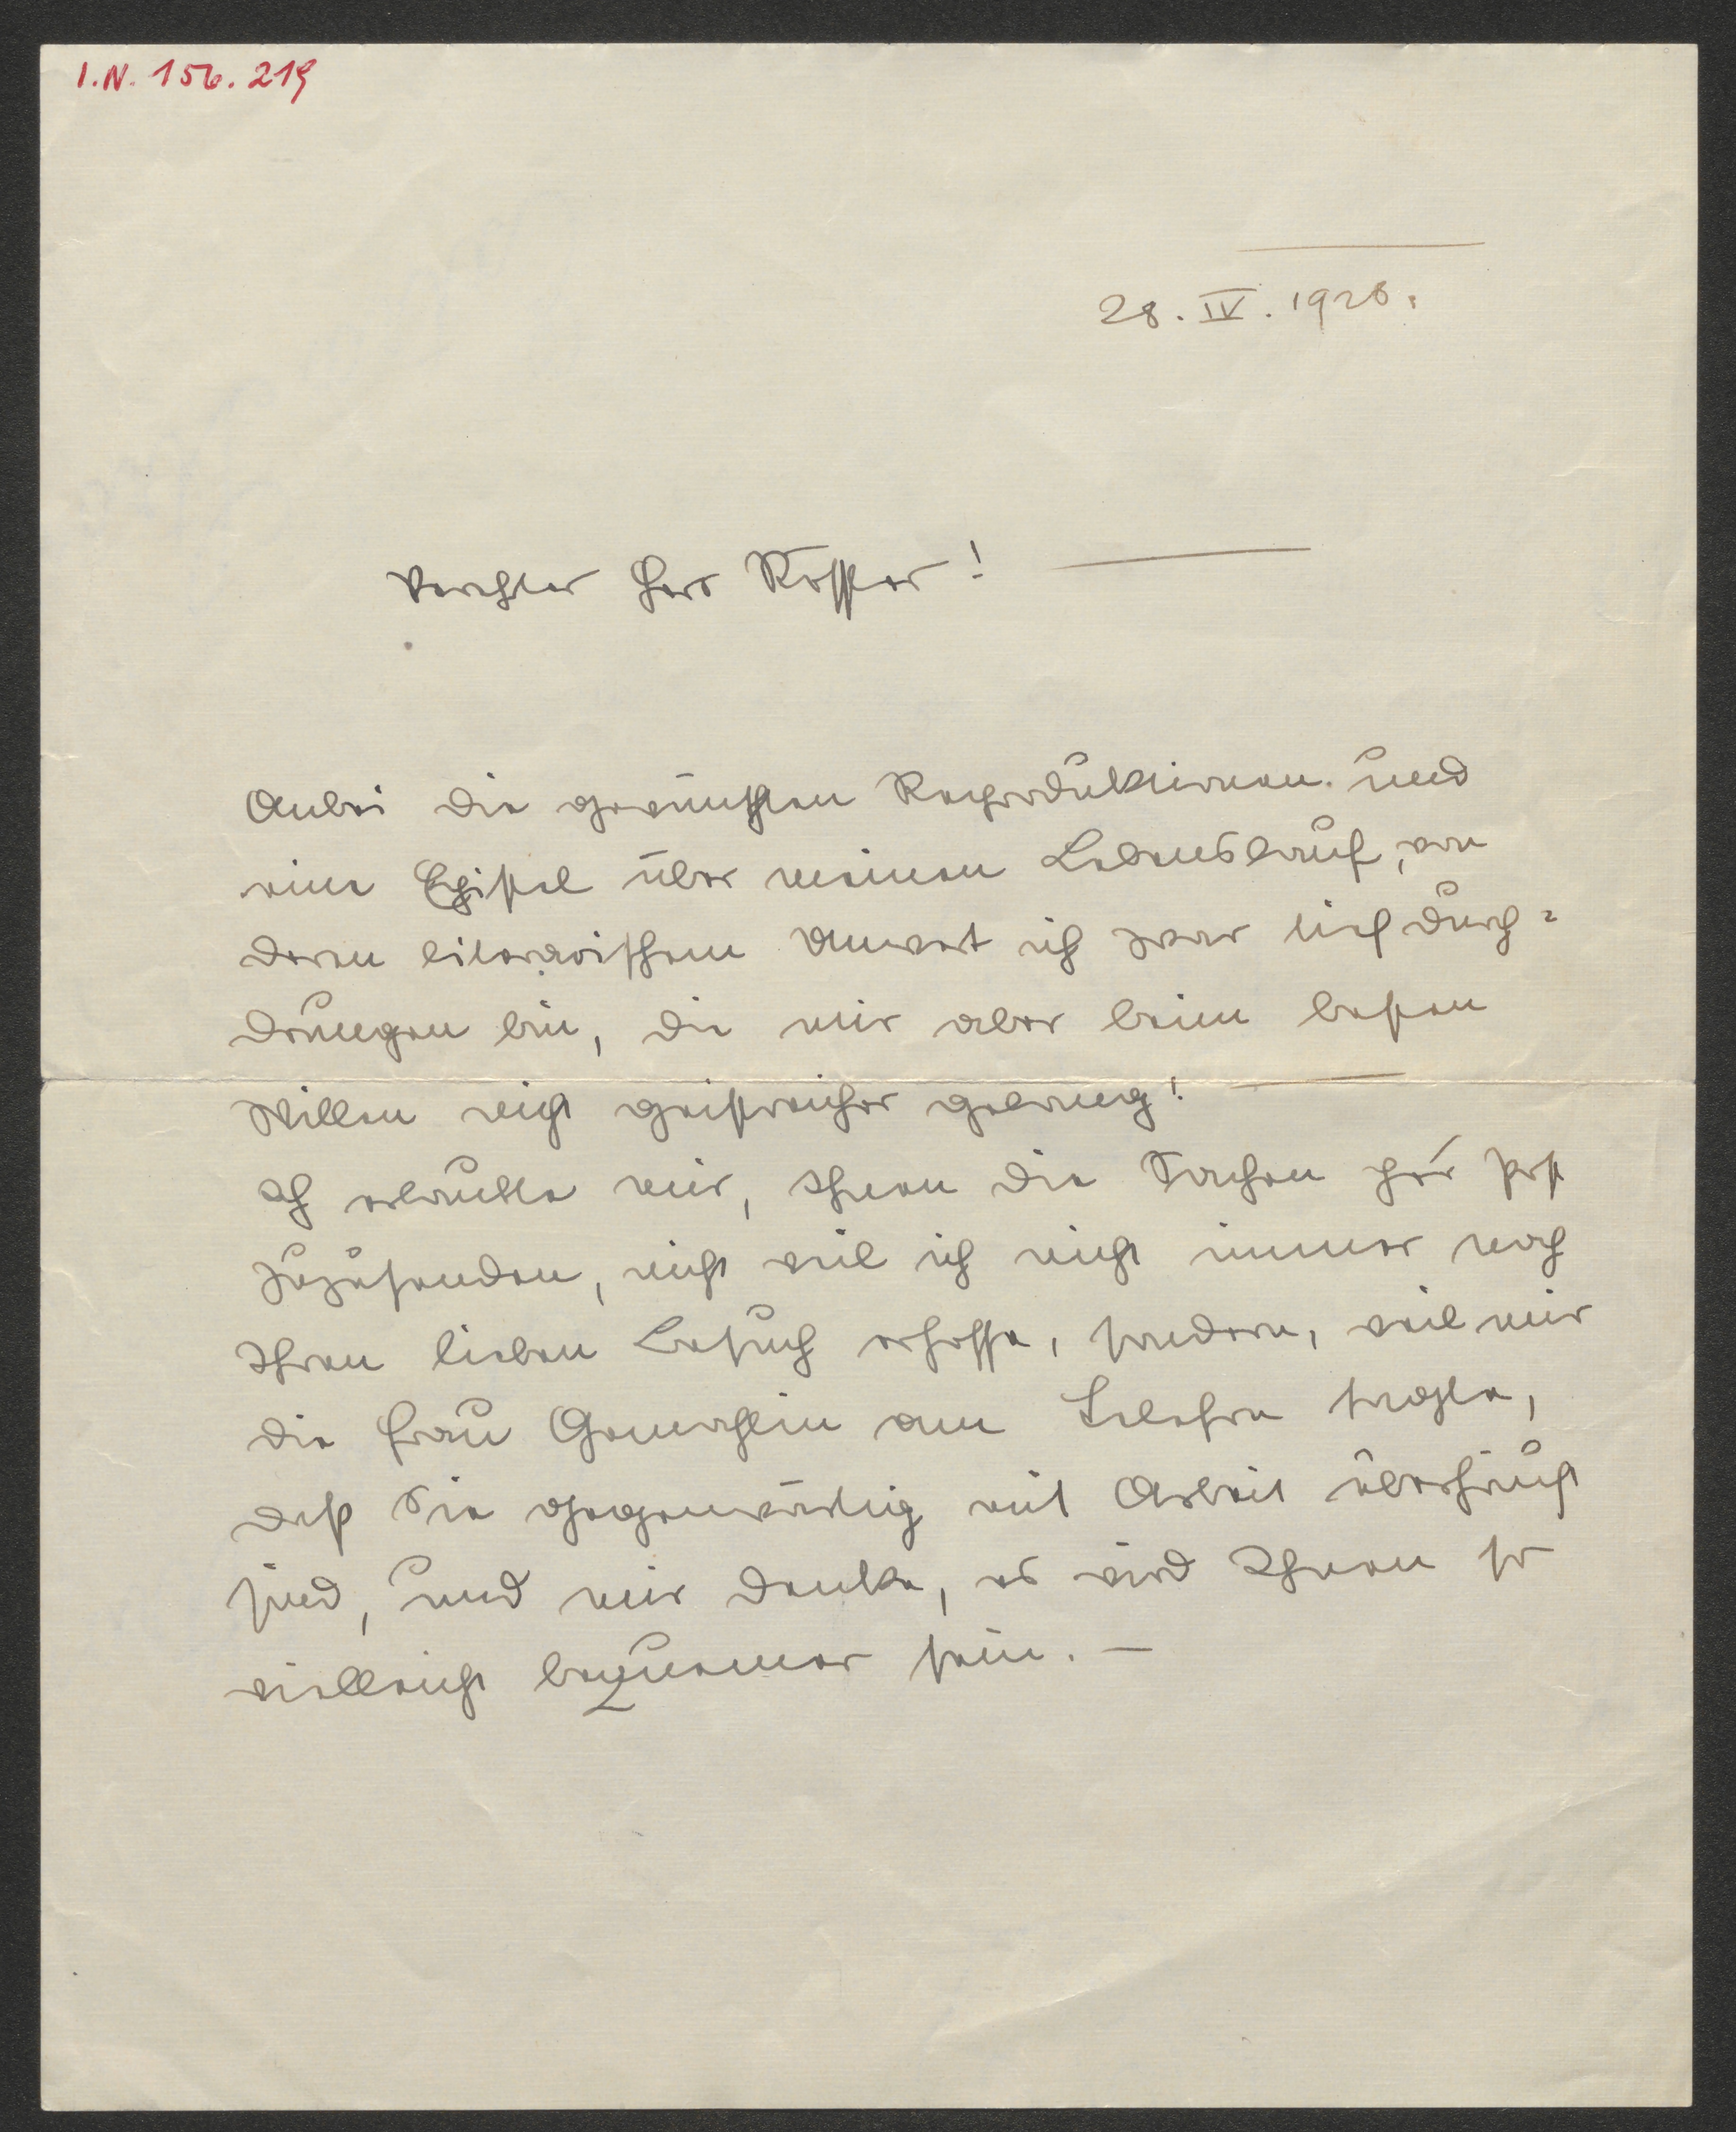 I.N. 156.219
28. IV. 1926.
Verehrter Herr Rössler!
Anbei die gewünschten Reproduktionen und
eine Epistel über meinen Lebenslauf, von
deren literarischem Unwert ich zwar tief durch-
drungen bin, die mir aber beim besten
Willen nicht geistreicher gelang!
Ich erlaubte mir, Ihnen die Sachen per Post
zuzusenden, nicht weil ich nicht immer noch
Ihren lieben Besuch erhoffe, sondern, weil mir
die Frau Gemahlin am Telefon sagte,
daß Sie gegenwärtig mit Arbeit überhäuft
sind, und mir denke, es wird Ihnen so
vielleicht bequemer sein. —